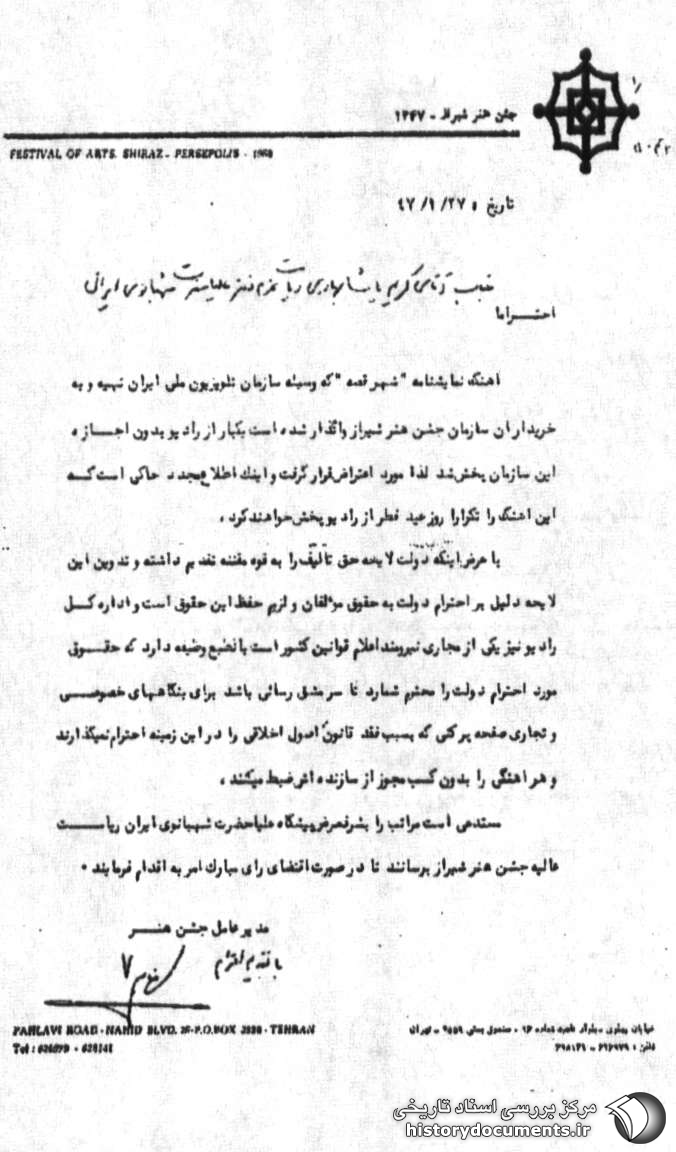 جشن هنر شیراز - ۱۳۴۷
FESTIVAL OF ARTS. SHIRAZ - PERSEPOLIS - 1968
تاریخ : ۴۷/۹/۲۷
جناب آقای کریم پاشا بهادری ریاست محترم دفتر علیاحضرت شهبانوی ایران
احتراما
اهنگ نمایشنامه "شهر قصه" که وسیله سازمان تلویزیون ملی ایران تهیه و به
خریداران سازمان جشن هنر شیراز واگذار شده است یکبار از رادیو بدون اجازه
این سازمان پخش شد لذا مورد اعتراض قرار گرفت و اینک اطلاع مجدد حاکی است که
این اهنگ را تکرارا روز عید فطر از رادیو پخش خواهند کرد .
با عرض اینکه دولت لایحه حق تألیف را به قوه مقننه تقدیم داشته و تدوین این
لایحه دلیل بر احترام دولت به حقوق مؤلفان و لزوم حفظ این حقوق است و اداره کل
رادیو نیز یکی از مجاری نیرومند اعلام قوانین کشور است بالطبع وضیفه دارد که حقوق
مورد احترام دولت را محترم شمارد تا سرمشق رسائی باشد برای بنگاههای خصوصی
و تجاری صفحه پرکنی که بسبب فقد قانون اصول اخلاقی را در این زمینه احترام نمیگذارند
و هر اهنگی را بدون کسب مجوز از سازنده اش ضبط میکنند .
مستدعی است مراتب را بشرفعرض پیشگاه علیاحضرت شهبانوی ایران ریاست
عالیه جشن هنر شیراز برسانند تا در صورت اقتضای رای مبارک امر به اقدام فرمایند .
مدیر عامل جشن هنر
با تقدیم احترام
PAHLAVI ROAD - NAHID BLVD. P.O.BOX - TEHRAN
خیابان پهلوی - بلوار ناهید شماره - صندوق پستی - تهران
Tel :
تلفن :
مرکز بررسی اسناد تاریخی
historydocuments.ir